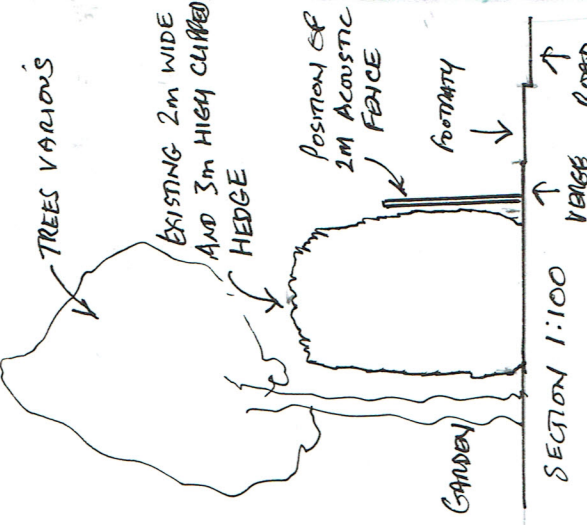 TREES VARIOUS
EXISTING 2m WIDE
AND 3m HIGH CLIPPED
HEDGE
POSITION OF
2M ACOUSTIC
FENCE
FOOTPATH
GARDEN
VERGE
ROAD
SECTION 1:100